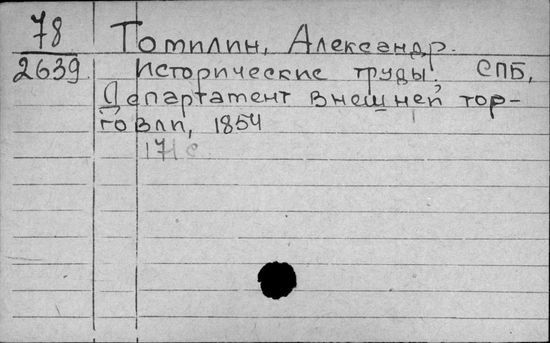 78
2639
Томилин, Александр.
Исторические труды. СПБ,
Департамент внешней тор-
говли, 1854
171 с.